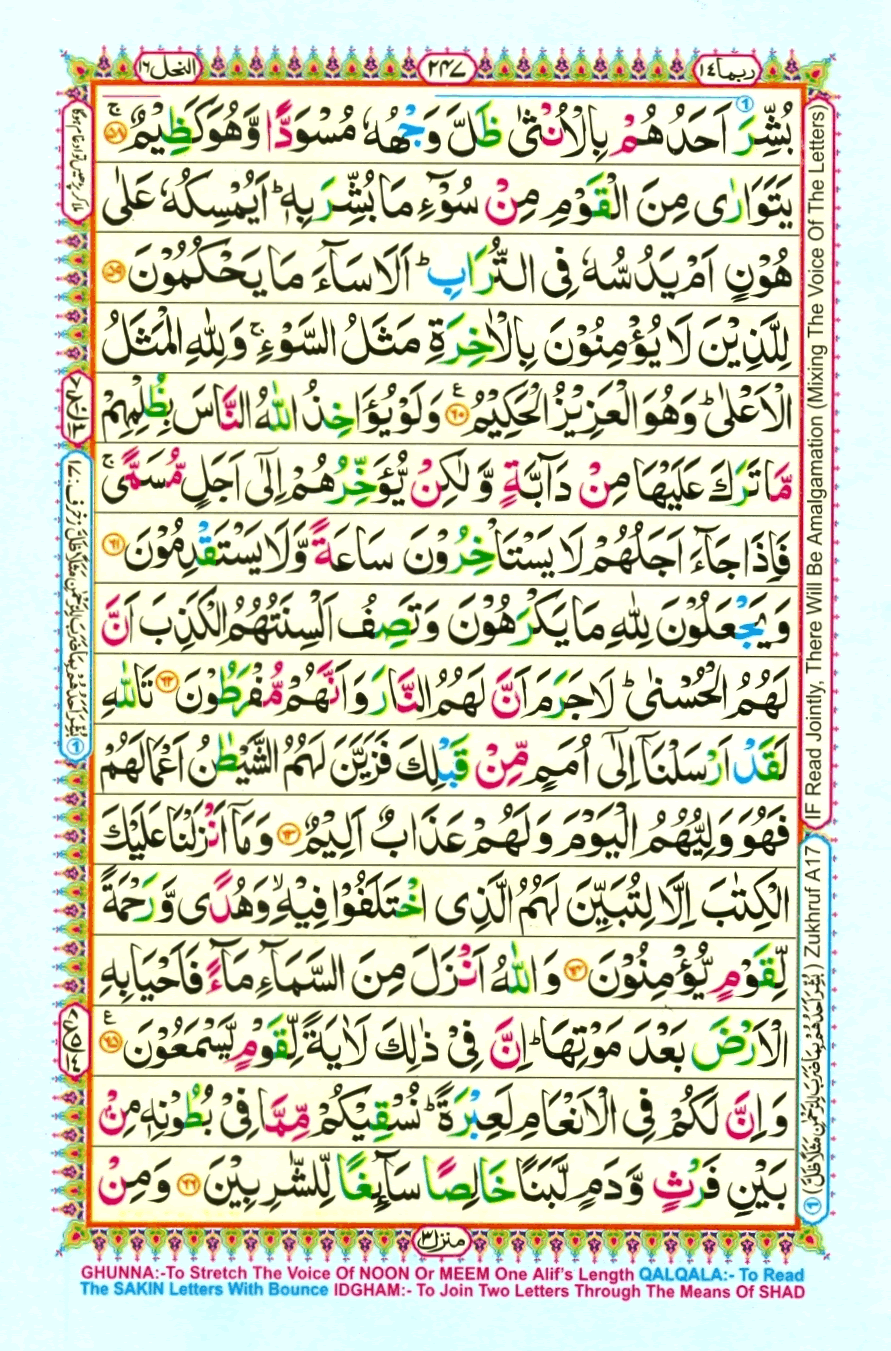 ربما ١٤
٢٤٧
النحل ١٦
بُشِّرَ اَحَدُهُمْ بِالْاُنْثٰى ظَلَّ وَجْهُهٗ مُسْوَدًّا وَّهُوَ كَظِيْمٌ ۚ ۵۸
يَتَوَارٰى مِنَ الْقَوْمِ مِنْ سُوْٓءِ مَا بُشِّرَ بِهٖ ؕ اَيُمْسِكُهٗ عَلٰى
هُوْنٍ اَمْ يَدُسُّهٗ فِى التُّرَابِ ؕ اَلَا سَآءَ مَا يَحْكُمُوْنَ ۵۹
لِلَّذِيْنَ لَا يُؤْمِنُوْنَ بِالْاٰخِرَةِ مَثَلُ السَّوْءِ ۚ وَلِلّٰهِ الْمَثَلُ
الْاَعْلٰى ؕ وَهُوَ الْعَزِيْزُ الْحَكِيْمُ ۶۰ ع وَلَوْ يُؤَاخِذُ اللّٰهُ النَّاسَ بِظُلْمِهِمْ
مَّا تَرَكَ عَلَيْهَا مِنْ دَآبَّةٍ وَّلٰكِنْ يُّؤَخِّرُهُمْ اِلٰٓى اَجَلٍ مُّسَمًّى ۚ
فَاِذَا جَآءَ اَجَلُهُمْ لَا يَسْتَاْخِرُوْنَ سَاعَةً وَّلَا يَسْتَقْدِمُوْنَ ۶۱
وَيَجْعَلُوْنَ لِلّٰهِ مَا يَكْرَهُوْنَ وَتَصِفُ اَلْسِنَتُهُمُ الْكَذِبَ اَنَّ
لَهُمُ الْحُسْنٰى ؕ لَا جَرَمَ اَنَّ لَهُمُ النَّارَ وَاَنَّهُمْ مُّفْرَطُوْنَ ۶۲ تَاللّٰهِ
لَقَدْ اَرْسَلْنَآ اِلٰٓى اُمَمٍ مِّنْ قَبْلِكَ فَزَيَّنَ لَهُمُ الشَّيْطٰنُ اَعْمَالَهُمْ
فَهُوَ وَلِيُّهُمُ الْيَوْمَ وَلَهُمْ عَذَابٌ اَلِيْمٌ ۶۳ وَمَآ اَنْزَلْنَا عَلَيْكَ
الْكِتٰبَ اِلَّا لِتُبَيِّنَ لَهُمُ الَّذِى اخْتَلَفُوْا فِيْهِ ۙ وَهُدًى وَّرَحْمَةً
لِّقَوْمٍ يُّؤْمِنُوْنَ ۶۴ وَاللّٰهُ اَنْزَلَ مِنَ السَّمَآءِ مَآءً فَاَحْيَا بِهِ
الْاَرْضَ بَعْدَ مَوْتِهَا ؕ اِنَّ فِىْ ذٰلِكَ لَاٰيَةً لِّقَوْمٍ يَّسْمَعُوْنَ ۶۵ ع
وَاِنَّ لَكُمْ فِى الْاَنْعَامِ لَعِبْرَةً ؕ نُسْقِيْكُمْ مِّمَّا فِىْ بُطُوْنِهٖ مِنْۢ
بَيْنِ فَرْثٍ وَّدَمٍ لَّبَنًا خَالِصًا سَآئِغًا لِّلشّٰرِبِيْنَ ۶۶ وَمِنْ
IF Read Jointly, There Will Be Amalgamation (Mixing The Voice Of The Letters)
۱ (بُشِّرَ اَحَدُهُمْ بِمَا ضَرَبَ لِلرَّحْمٰنِ مَثَلًا ظَلَّ) Zukhruf A17
۱ بُشِّرَ اَحَدُهُمْ بِمَا ضَرَبَ لِلرَّحْمٰنِ مَثَلًا ظَلَّ زخرف : ١٧
منزل ٣
GHUNNA:-To Stretch The Voice Of NOON Or MEEM One Alif's Length QALQALA:- To Read
The SAKIN Letters With Bounce IDGHAM:- To Join Two Letters Through The Means Of SHAD